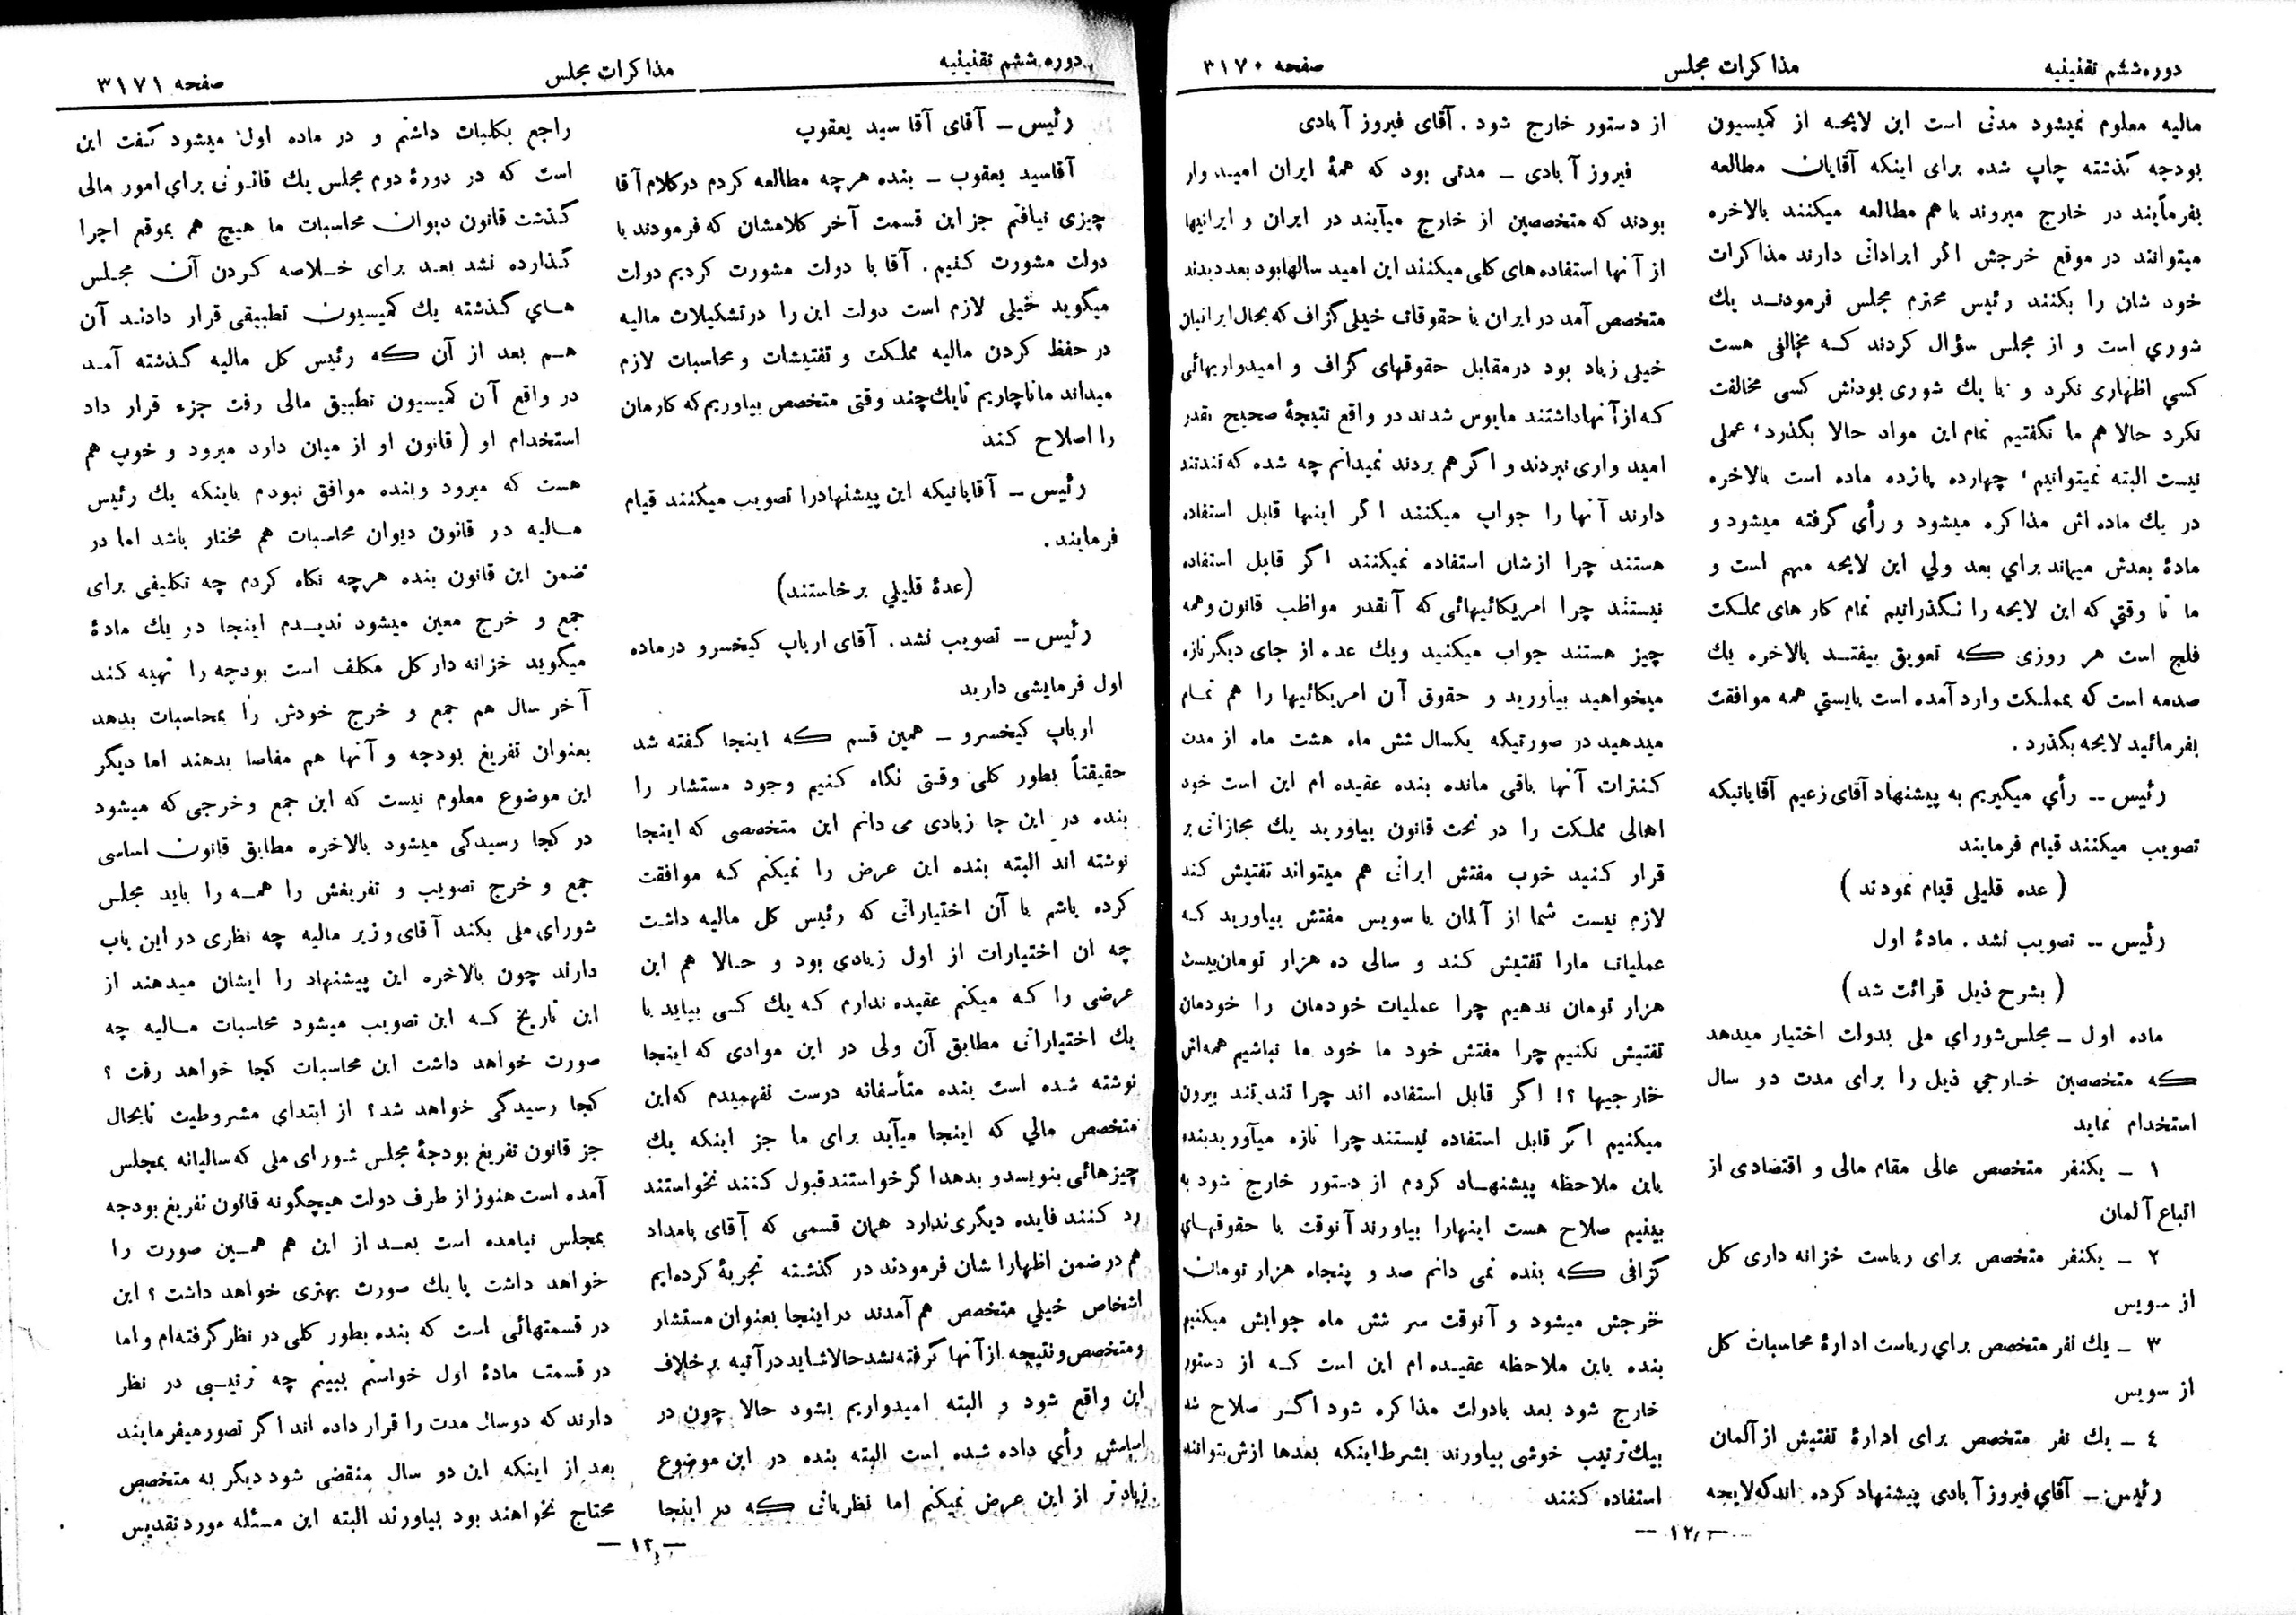 دوره ششم تقنینیه
مذاکرات مجلس
صفحه ۳۱۷۰
مالیه معلوم نمیشود مدتی است این لایحه از کمیسیون
بودجه گذشته چاپ شده برای اینکه آقایان مطالعه
بفرمایند در خارج میروند با هم مطالعه میکنند بالاخره
میتوانند در موقع خرجش اگر ایراداتی دارند مذاکرات
خود شان را بکنند رئیس محترم مجلس فرمودند یك
شوری است و از مجلس سؤال کردند که مخالفی هست
کسی اظهاری نکرد و با یك شوری بودنش کسی مخالفت
نکرد حالا هم ما نگفتیم تمام این مواد حالا بگذرد، عملی
نیست البته نمیتوانیم، چهارده پازده ماده است بالاخره
در یك ماده اش مذاکره میشود و رأی گرفته میشود و
مادهٔ بعدش میماند برای بعد ولی این لایحه مهم است و
ما تا وقتی که این لایحه را نگذرانیم تمام کار های مملکت
فلج است هر روزی که تعویق بیفتد بالاخره یك
صدمه است که بمملکت وارد آمده است بایستی همه موافقت
بفرمائید لایحه بگذرد .
رئیس -- رأی میگیریم به پیشنهاد آقای زعیم آقایانیکه
تصویب میکنند قیام فرمایند
( عده قلیلی قیام نمودند )
رئیس -- تصویب نشد . مادهٔ اول
( بشرح ذیل قرائت شد )
ماده اول - مجلس شورای ملی بدولت اختیار میدهد
که متخصصین خارجی ذیل را برای مدت دو سال
استخدام نماید
۱ - یکنفر متخصص عالی مقام مالی و اقتصادی از
اتباع آلمان
۲ - یکنفر متخصص برای ریاست خزانه داری کل
از سویس
۳ - یك نفر متخصص برای ریاست ادارهٔ محاسبات کل
از سویس
٤ - یك نفر متخصص برای ادارهٔ تفتیش از آلمان
رئیس - آقای فیروز آبادی پیشنهاد کرده اند که لایحه
از دستور خارج شود . آقای فیروز آبادی
فیروز آبادی - مدتی بود که همهٔ ایران امیدوار
بودند که متخصصین از خارج میآیند در ایران و ایرانیها
از آنها استفاده های کلی میکنند این امید سالها بود بعد دیدند
متخصص آمد در ایران با حقوقات خیلی گزاف که بحال ایرانیان
خیلی زیاد بود در مقابل حقوقهای گزاف و امیدواریهائی
که از آنها داشتند مایوس شدند در واقع نتیجهٔ صحیح بقدر
امید واری نبردند و اگر هم بردند نمیدانم چه شده که تند تند
دارند آنها را جواب میکنند اگر اینها قابل استفاده
هستند چرا ازشان استفاده نمیکنند اگر قابل استفاده
نیستند چرا امریکائیهائی که آنقدر مواظب قانون و همه
چیز هستند جواب میکنید و یك عده از جای دیگر تازه
میخواهید بیاورید و حقوق آن امریکائیها را هم تمام
میدهید در صورتیکه یکسال شش ماه هشت ماه از مدت
کنترات آنها باقی مانده بنده عقیده ام این است خود
اهالی مملکت را در تحت قانون بیاورید یك مجازاتی بر
قرار کنید خوب مفتش ایرانی هم میتواند تفتیش کند
لازم نیست شما از آلمان یا سویس مفتش بیاورید که
عملیات مارا تفتیش کند و سالی ده هزار تومان بیست
هزار تومان ندهیم چرا عملیات خودمان را خودمان
تفتیش نکنیم چرا مفتش خود ما خود ما نباشیم همه اش
خارجیها ؟! اگر قابل استفاده اند چرا تند تند بیرون
میکنیم اگر قابل استفاده نیستند چرا تازه میآورید بنده
باین ملاحظه پیشنهاد کردم از دستور خارج شود به
بینیم صلاح هست اینهارا بیاورند آنوقت با حقوقهای
گزافی که بنده نمی دانم صد و پنجاه هزار تومان
خرجش میشود و آنوقت سر شش ماه جوابش میکنیم
بنده باین ملاحظه عقیده ام این است که از دستور
خارج شود بعد بادولت مذاکره شود اگر صلاح شد
بیك ترتیب خوشی بیاورند بشرط اینکه بعدها ازش بتوانند
استفاده کنند
دوره ششم تقنینیه
مذاکرات مجلس
صفحه ۳۱۷۱
رئیس - آقای آقا سید یعقوب
آقاسید یعقوب - بنده هرچه مطالعه کردم در کلام آقا
چیزی نیافتم جز این قسمت آخر کلامشان که فرمودند با
دولت مشورت کنیم . آقا با دولت مشورت کردیم دولت
میگوید خیلی لازم است دولت این را در تشکیلات مالیه
در حفظ کردن مالیه مملکت و تفتیشات و محاسبات لازم
میداند ما ناچاریم تا یك چند وقتی متخصص بیاوریم که کارمان
را اصلاح کند
رئیس - آقایانیکه این پیشنهادرا تصویب میکنند قیام
فرمایند .
(عدهٔ قلیلی برخاستند)
رئیس -- تصویب نشد . آقای ارباب کیخسرو در ماده
اول فرمایشی دارید
ارباب کیخسرو - همین قسم که اینجا گفته شد
حقیقتاً بطور کلی وقتی نگاه کنیم وجود مستشار را
بنده در این جا زیادی می دانم این متخصصی که اینجا
نوشته اند البته بنده این عرض را نمیکنم که موافقت
کرده باشم با آن اختیاراتی که رئیس کل مالیه داشت
چه ان اختیارات از اول زیادی بود و حالا هم این
عرضی را که میکنم عقیده ندارم که یك کسی بیاید با
یك اختیاراتی مطابق آن ولی در این موادی که اینجا
نوشته شده است بنده متأسفانه درست نفهمیدم که این
متخصص مالی که اینجا میآید برای ما جز اینکه یك
چیزهائی بنویسد و بدهد اگر خواستند قبول کنند نخواستند
رد کنند فایده دیگری ندارد همان قسمی که آقای بامداد
هم در ضمن اظهارا شان فرمودند در گذشته تجربهٔ کرده ایم
اشخاص خیلی متخصص هم آمدند در اینجا بعنوان مستشار
و متخصص و نتیجه از آنها گرفته نشد حالا شاید در آتیه برخلاف
این واقع شود و البته امیدواریم بشود حالا چون در
اساسش رأی داده شده است البته بنده در این موضوع
زیادتر از این عرض نمیکنم اما نظریاتی که در اینجا
راجع بکلیات داشتم و در ماده اول میشود گفت این
است که در دورهٔ دوم مجلس یك قانونی برای امور مالی
گذشت قانون دیوان محاسبات ما هیچ هم بموقع اجرا
گذارده نشد بعد برای خلاصه کردن آن مجلس
های گذشته یك کمیسیون تطبیقی قرار دادند آن
هم بعد از آن که رئیس کل مالیه گذشته آمد
در واقع آن کمیسیون تطبیق مالی رفت جزء قرار داد
استخدام او ( قانون او از میان دارد میرود و خوب هم
هست که میرود و بنده موافق نبودم باینکه یك رئیس
مالیه در قانون دیوان محاسبات هم مختار باشد اما در
ضمن این قانون بنده هرچه نگاه کردم چه تکلیفی برای
جمع و خرج معین میشود ندیدم اینجا در یك مادهٔ
میگوید خزانه دار کل مکلف است بودجه را تهیه کند
آخر سال هم جمع و خرج خودش را بمحاسبات بدهد
بعنوان تفریغ بودجه و آنها هم مفاصا بدهند اما دیگر
این موضوع معلوم نیست که این جمع و خرجی که میشود
در کجا رسیدگی میشود بالاخره مطابق قانون اساسی
جمع و خرج تصویب و تفریغش را همه را باید مجلس
شورای ملی بکند آقای وزیر مالیه چه نظری در این باب
دارند چون بالاخره این پیشنهاد را ایشان میدهند از
این تاریخ که این تصویب میشود محاسبات مالیه چه
صورت خواهد داشت این محاسبات کجا خواهد رفت ؟
کجا رسیدگی خواهد شد؟ از ابتدای مشروطیت تابحال
جز قانون تفریغ بودجهٔ مجلس شورای ملی که سالیانه بمجلس
آمده است هنوز از طرف دولت هیچگونه قانون تفریغ بودجه
بمجلس نیامده است بعد از این هم همین صورت را
خواهد داشت یا یك صورت بهتری خواهد داشت ؟ این
در قسمتهائی است که بنده بطور کلی در نظر گرفته ام و اما
در قسمت مادهٔ اول خواستم ببینم چه ترتیبی در نظر
دارند که دو سال مدت را قرار داده اند اگر تصور میفرمایند
بعد از اینکه این دو سال منقضی شود دیگر به متخصص
محتاج نخواهند بود بیاورند البته این مسئله مورد تقدیس